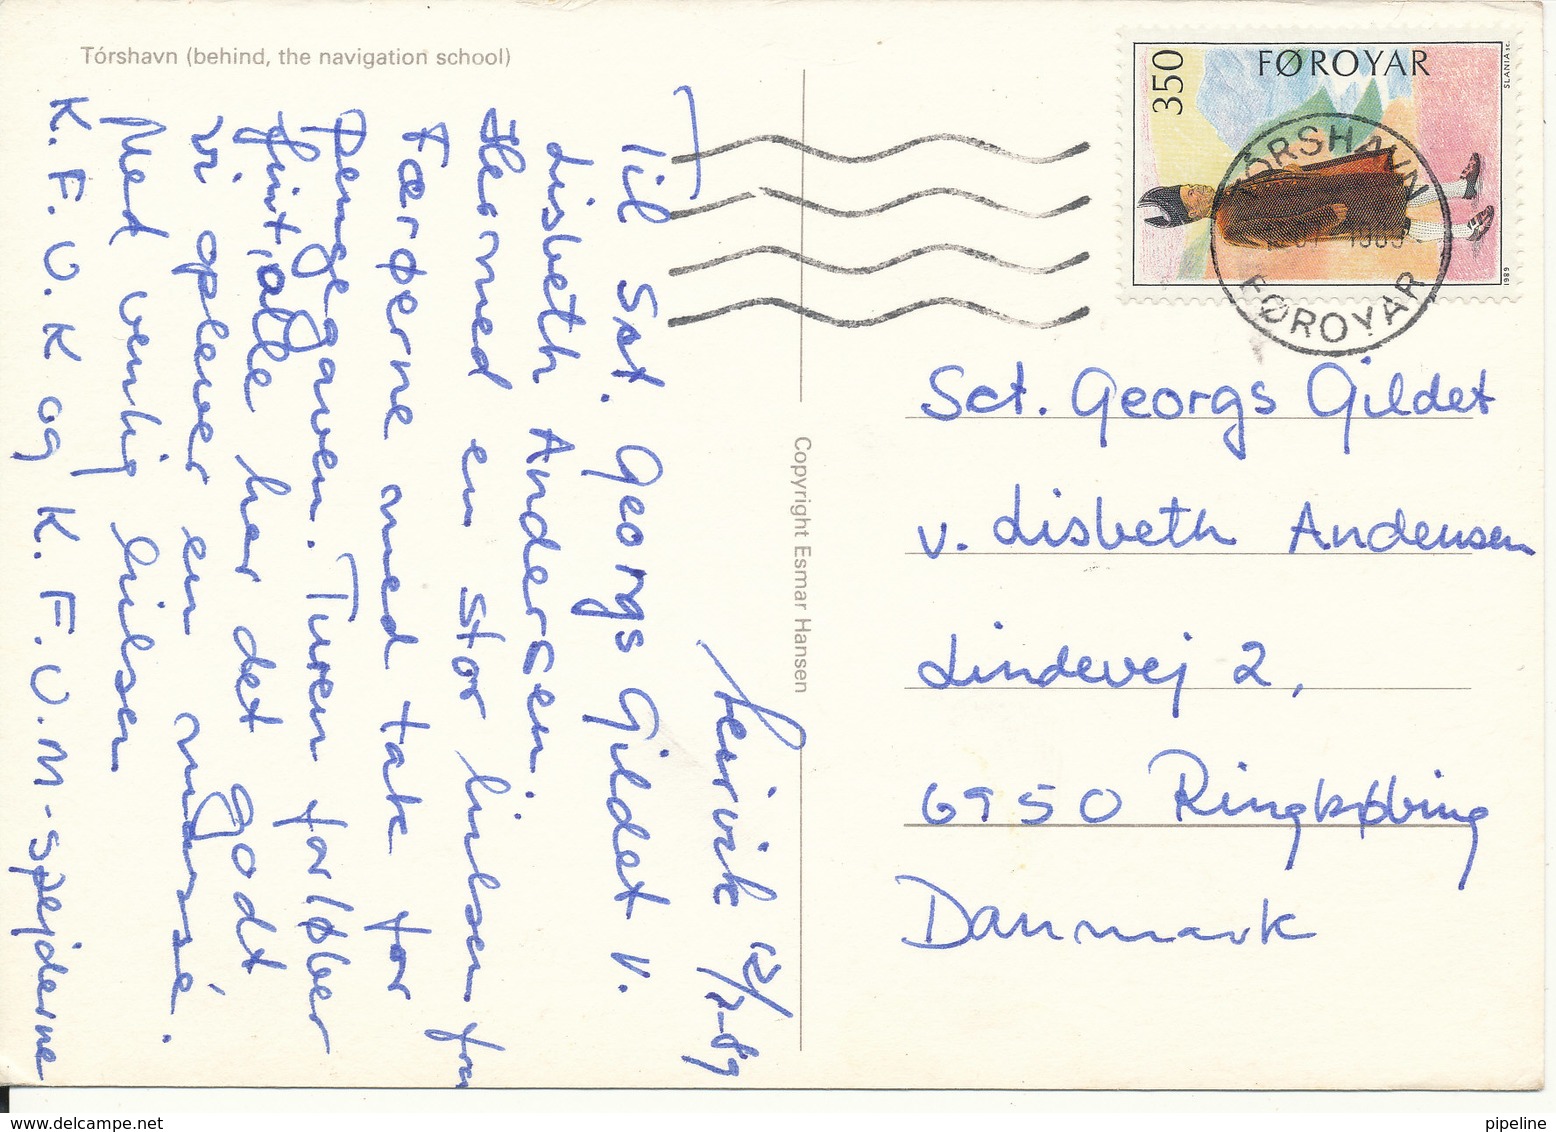 Tórshavn (behind, the navigation school)
Leirvik 12/7-89
Til Sct. Georgs Gildet v.
Lisbeth Andersen.
Hermed en stor hilsen fra
Færøerne med tak for
pengegaven. Turen forløber
fint, alle har det godt
vi oplever en masse.
Med venlig hilsen
K.F.U.K og K.F.U.M-spejderne
Copyright Esmar Hansen
350
FØROYAR
SLANIA sc.
1989
TÓRSHAVN
FØROYAR
Sct. Georgs Gildet
v. Lisbeth Andersen
Lindevej 2,
6950 Ringkøbing
Danmark
www.delcampe.net
pipeline